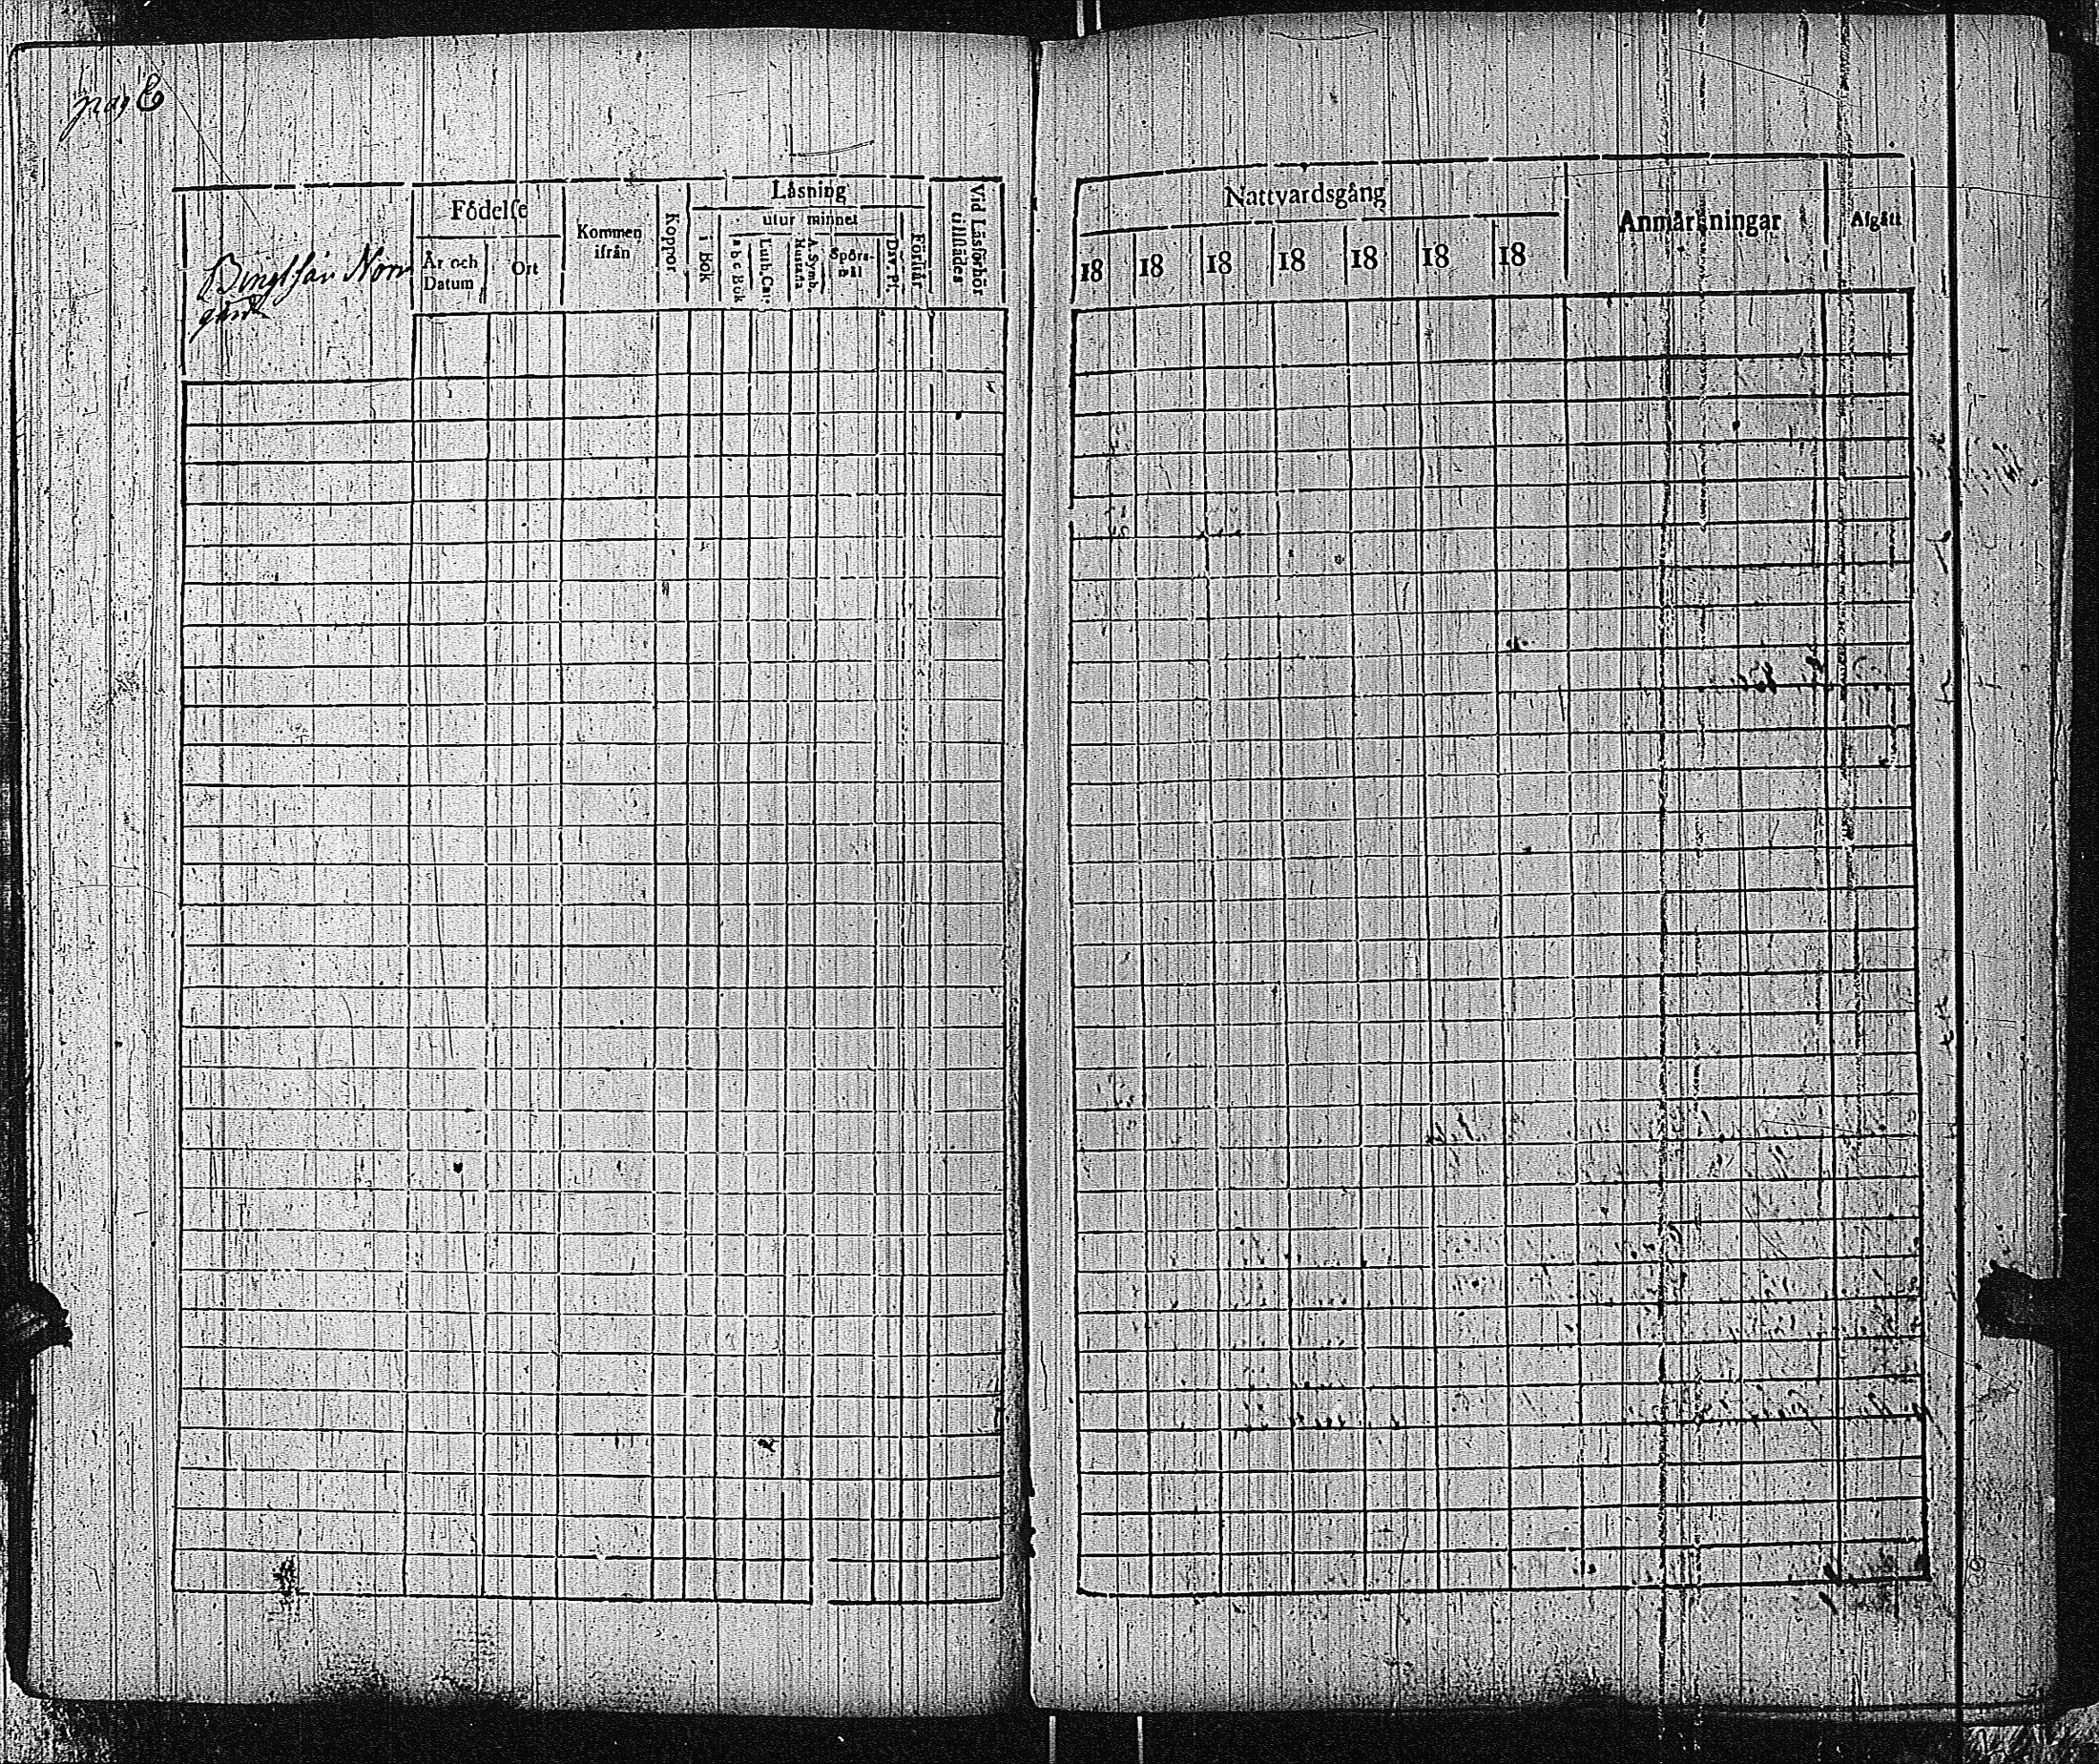 pag
Födelse
År och Datum
Ort
Kommen ifrån
Koppor
Låsning
i Bok
utur minnet
a b c Bok
Luth. Cat.
A. Symb.
Hustafla
Spörsmål
Dav. Ps.
Förstår
Vid Läsförhör tillstädes
gård
Nattvardsgång
18 18 18 18 18 18 18
Anmärkningar
Afgått